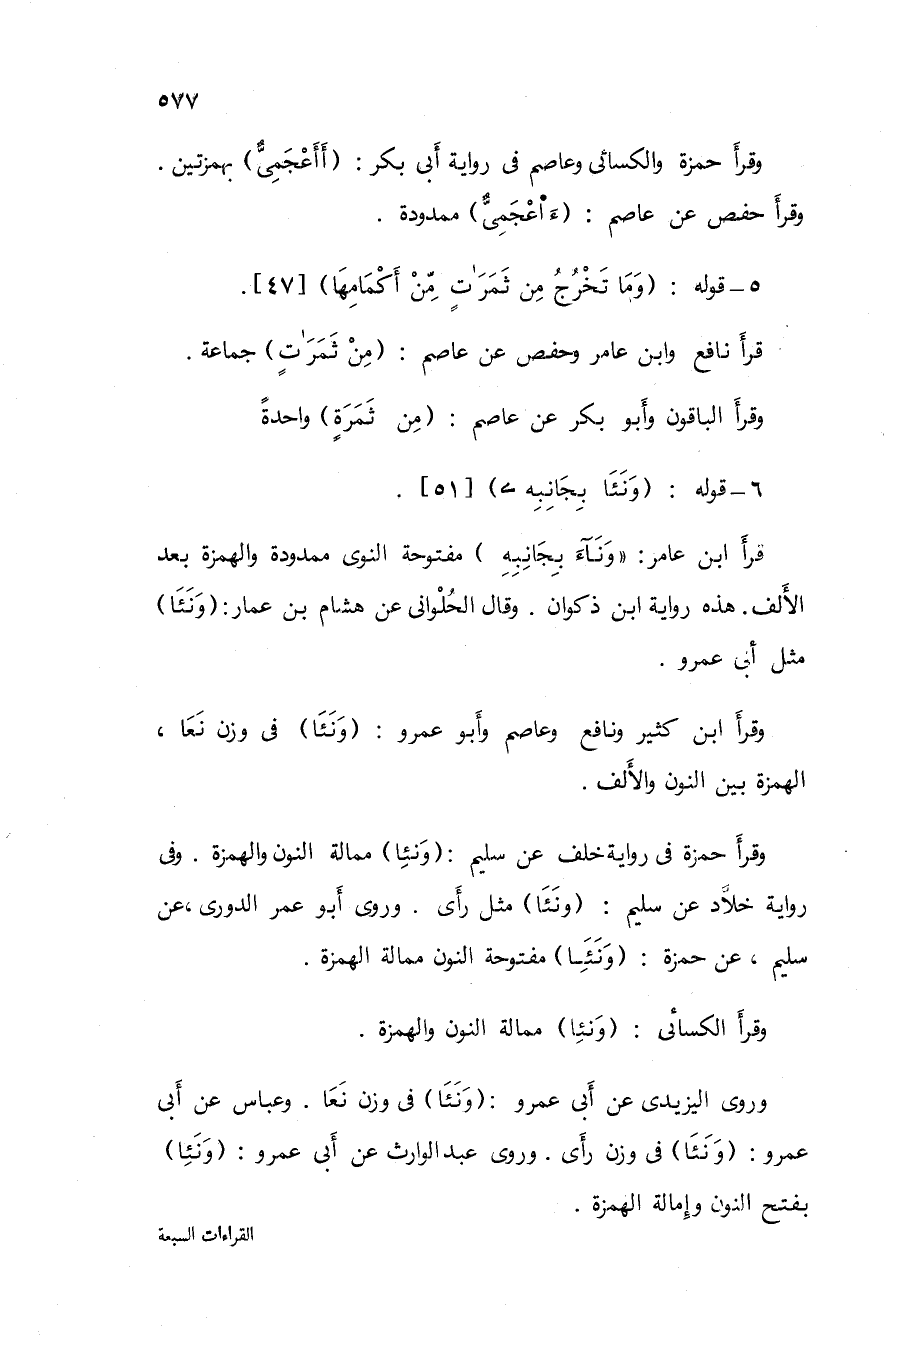 ٥٧٧
وقرأَ حمزة والكسائى وعاصم فى رواية أَبى بكر : (أَأَعْجَمِىٌّ) بهمزتين .
وقرأَ حفص عن عاصم : (ءَا۬عْجَمِىٌّ) ممدودة .
٥ – قوله : (وَمَا تَخْرُجُ مِن ثَمَرَٰتٍ مِّنْ أَكْمَامِهَا) [٤٧].
قرأَ نافع وابن عامر وحفص عن عاصم : (مِنْ ثَمَرَٰتٍ) جماعة .
وقرأَ الباقون وأَبو بكر عن عاصم : (مِن ثَمَرَةٍ) واحدةً
٦ – قوله : (وَنَـَٔا بِجَانِبِهِۦ) [٥١] .
قرأَ ابن عامر: «وَنَآءَ بِجَانِبِهِ ) مفتوحة النوى ممدودة والهمزة بعد
الأَلف. هذه رواية ابن ذكوان . وقال الحُلْوانى عن هشام بن عمار: (وَنَـَٔا)
مثل أَبى عمرو .
وقرأَ ابن كثير ونافع وعاصم وأَبو عمرو : (وَنَـَٔا) فى وزن نَعَا ،
الهمزة بين النون والأَلف .
وقرأَ حمزة فى رواية خلف عن سليم : (وَنِئِا) ممالة النون والهمزة . وفى
رواية خلاَّد عن سليم : (ونَـَٔا) مثل رأَى . وروى أَبو عمر الدورى ،عن
سليم ، عن حمزة : (وَنَئِـا) مفتوحة النون ممالة الهمزة .
وقرأَ الكسائى : (وَنِئِا) ممالة النون والهمزة .
وروى اليزيدى عن أَبى عمرو : (وَنَـَٔا) فى وزن نَعَا . وعباس عن أَبى
عمرو : (وَنَـَٔا) فى وزن رأَى . وروى عبد الوارث عن أَبى عمرو : (وَنَئِا)
بفتح النون وإمالة الهمزة .
القراءات السبعة